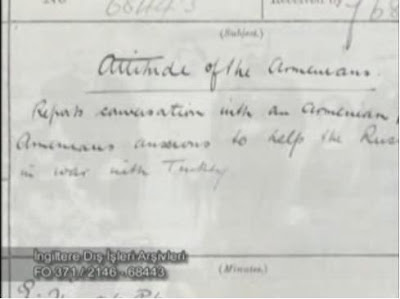 No 68443
Received by 768
(Subject.)
Attitude of the Armenians.
Reports conversation with an Armenian
Armenians anxious to help the Rus
in war with Turkey
İngiltere Dış İşleri Arşivleri
FO 371 / 2146 - 68443
(Minutes.)